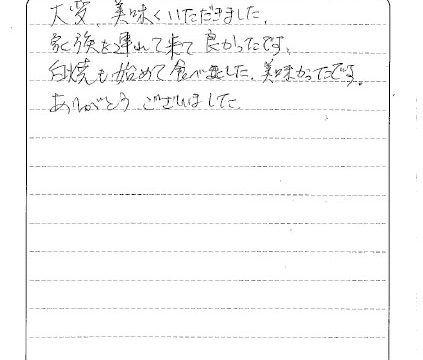 大変、美味くいただきました。
家族を連れて来て良かったです。
白焼も始めて食べました。美味かったです。
ありがとうございました。